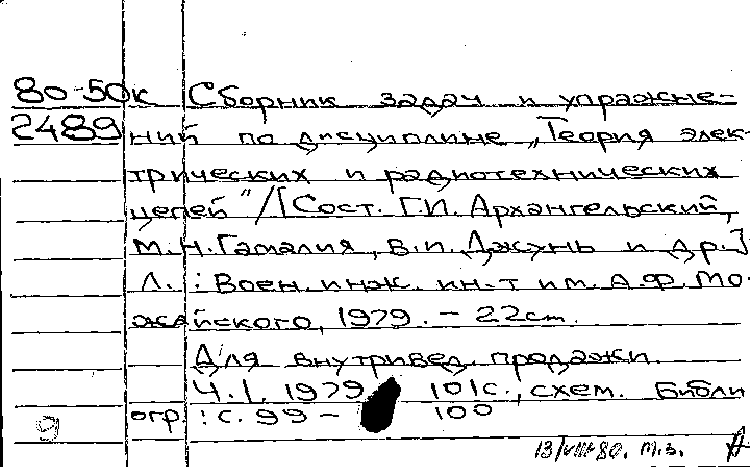 80-50к Сборник задач и упражне-
2489 ний по дисциплине „Теория элек-
трических и радиотехнических
цепей"/[Сост. Г.И. Архангельский,
М.Н. Гамалия, В.И. Джунь и др.]
Л.: Воен. инж. ин-т им. А.Ф. Мо-
жайского, 1979. - 22 см.
Для внутривед. продажи.
Ч. 1. 1979 101 с., схем. Библи
огр.: с. 99 - 100
9
13/VIII-80. м.з.